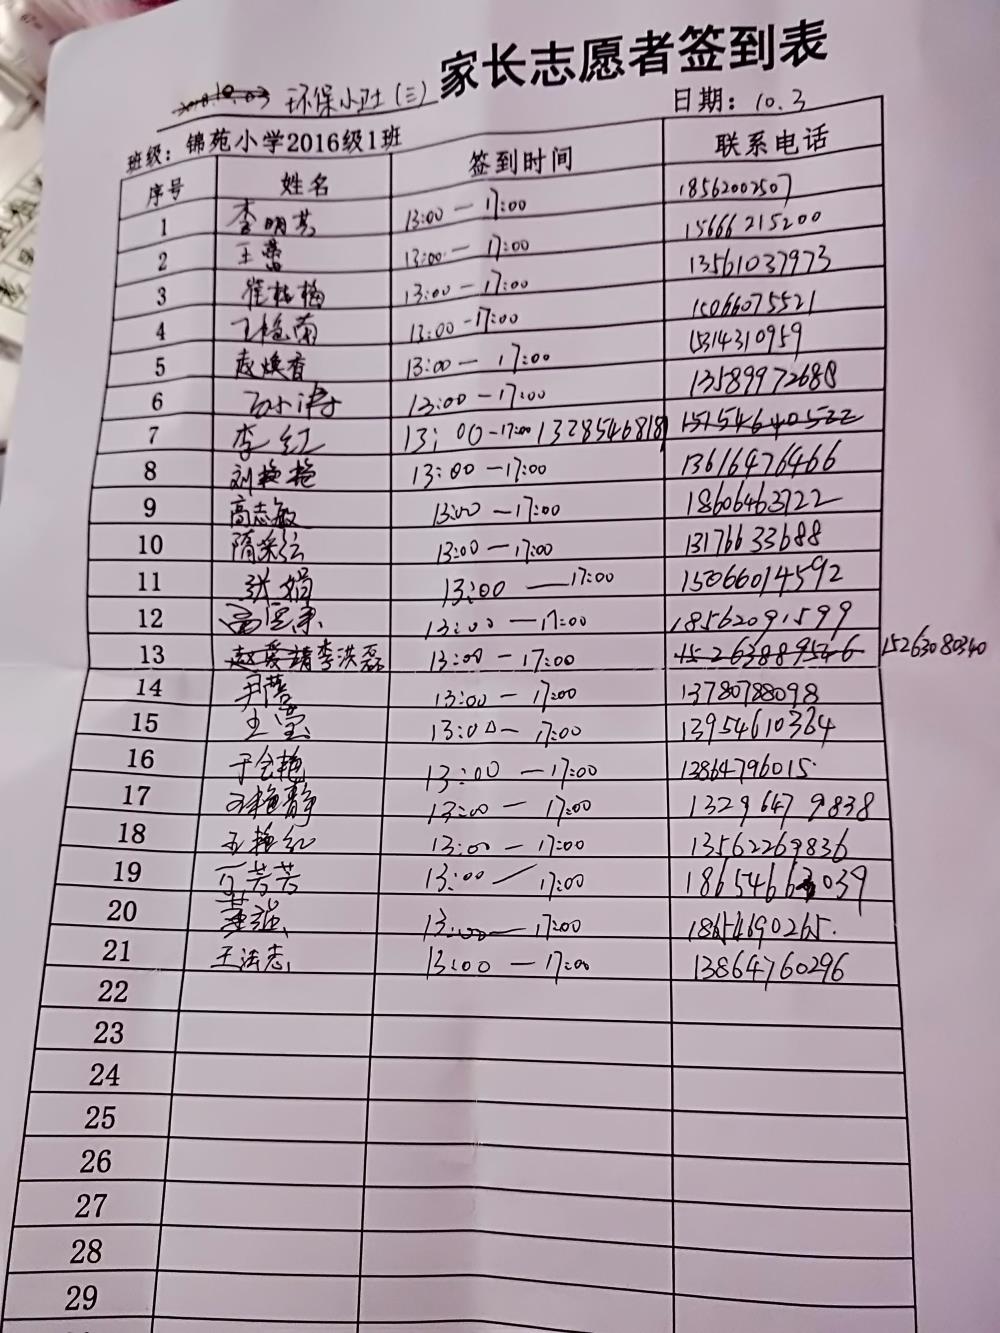 家长志愿者签到表
环保小卫士(三)
日期: 10.3
班级: 锦苑小学2016级1班
序号 姓名 签到时间 联系电话
1 李明芬 13:00-17:00 18562002507
2 王蕾 13:00-17:00 15666215200
3 崔桂梅 13:00-17:00 13561037973
4 王艳菊 13:00-17:00 15066075521
5 赵焕香 13:00-17:00 15314310959
6 13:00-17:00 13589972688
7 李红 13:00-17:00 13285468181 15154640522
8 刘艳艳 13:00-17:00 13616476466
9 高志敏 13:00-17:00 18606463722
10 隋 13:00-17:00 13176633688
11 张娟 13:00-17:00 15066014592
12 高 13:00-17:00 18562091599
13 赵爱靖李洪磊 13:00-17:00 15263889546 15263080340
14 尹蓓 13:00-17:00 13780788098
15 王宝 13:00-17:00 13954610334
16 于会艳 13:00-17:00 13864796015
17 王艳静 13:00-17:00 13296479838
18 王艳红 13:00-17:00 13562269836
19 芳芳 13:00-17:00 039
20 董强 13:00-17:00 18654690265
21 王法志 13:00-17:00 13864760296
22
23
24
25
26
27
28
29